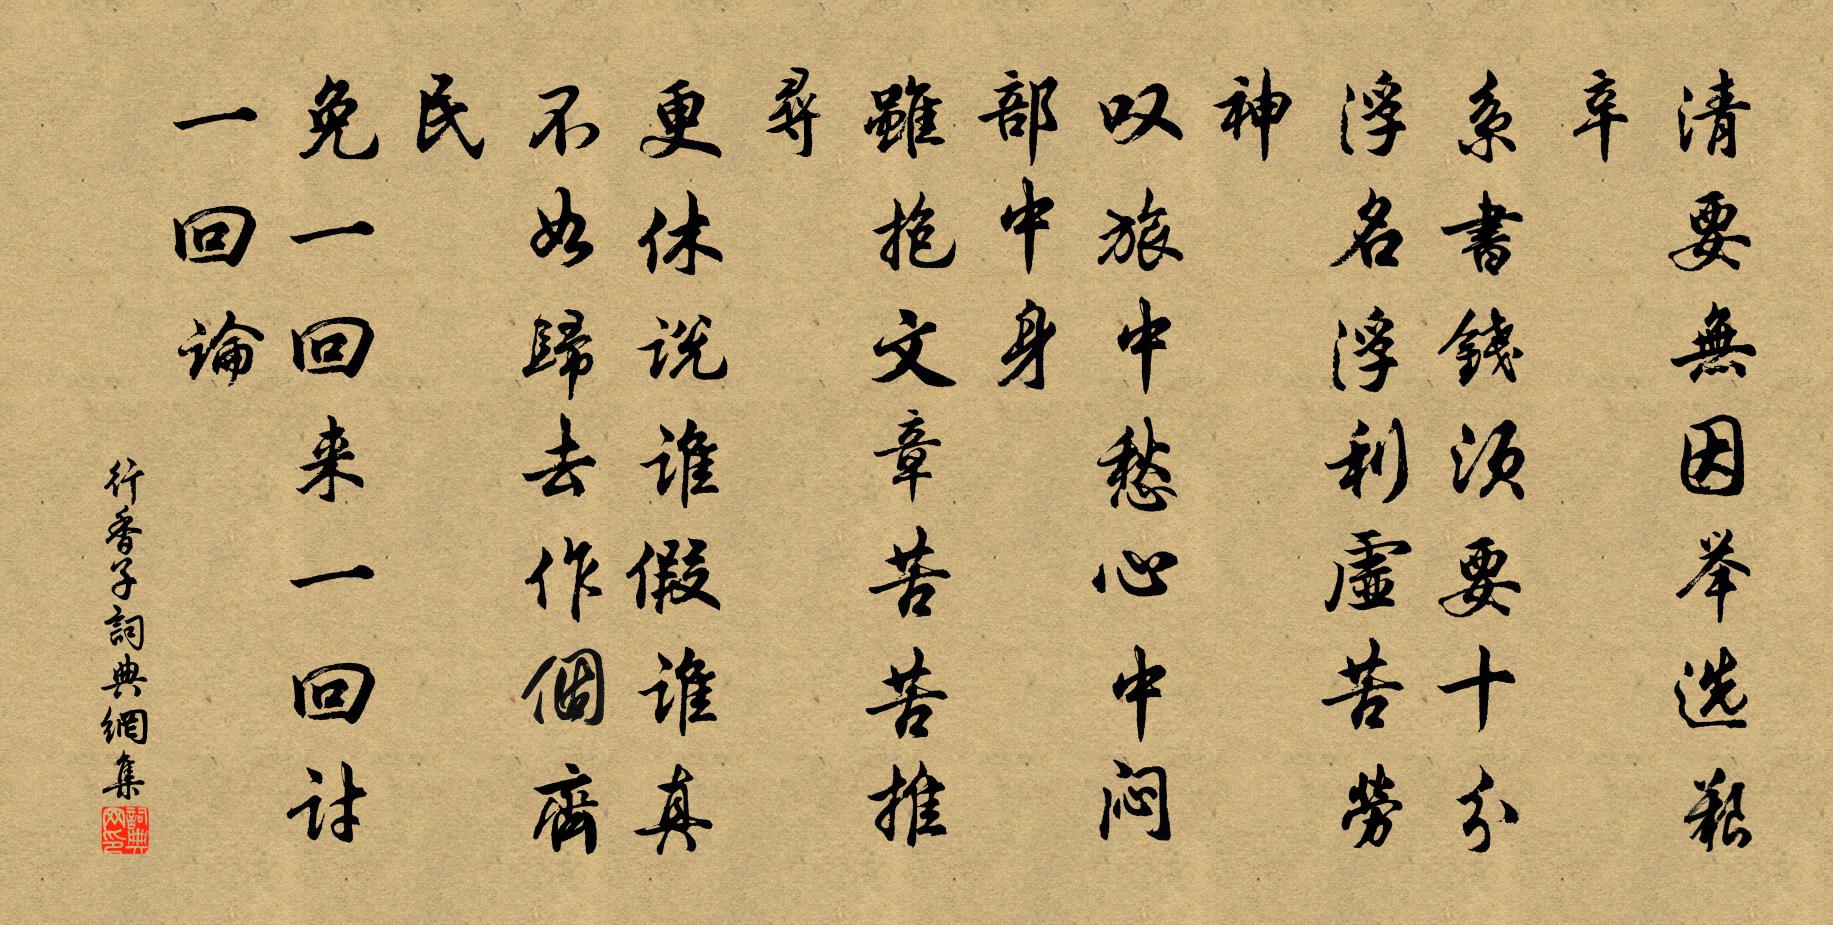 清要無因举选艰
辛
系書錢須要十分
浮名浮利虛苦勞
神
叹旅中愁心中闷
部中身
雖抱文章苦苦推
尋
更休说谁假谁真
不如歸去作個齊
民
免一回来一回讨
一回論
行香子詞典網集
詞典
网印